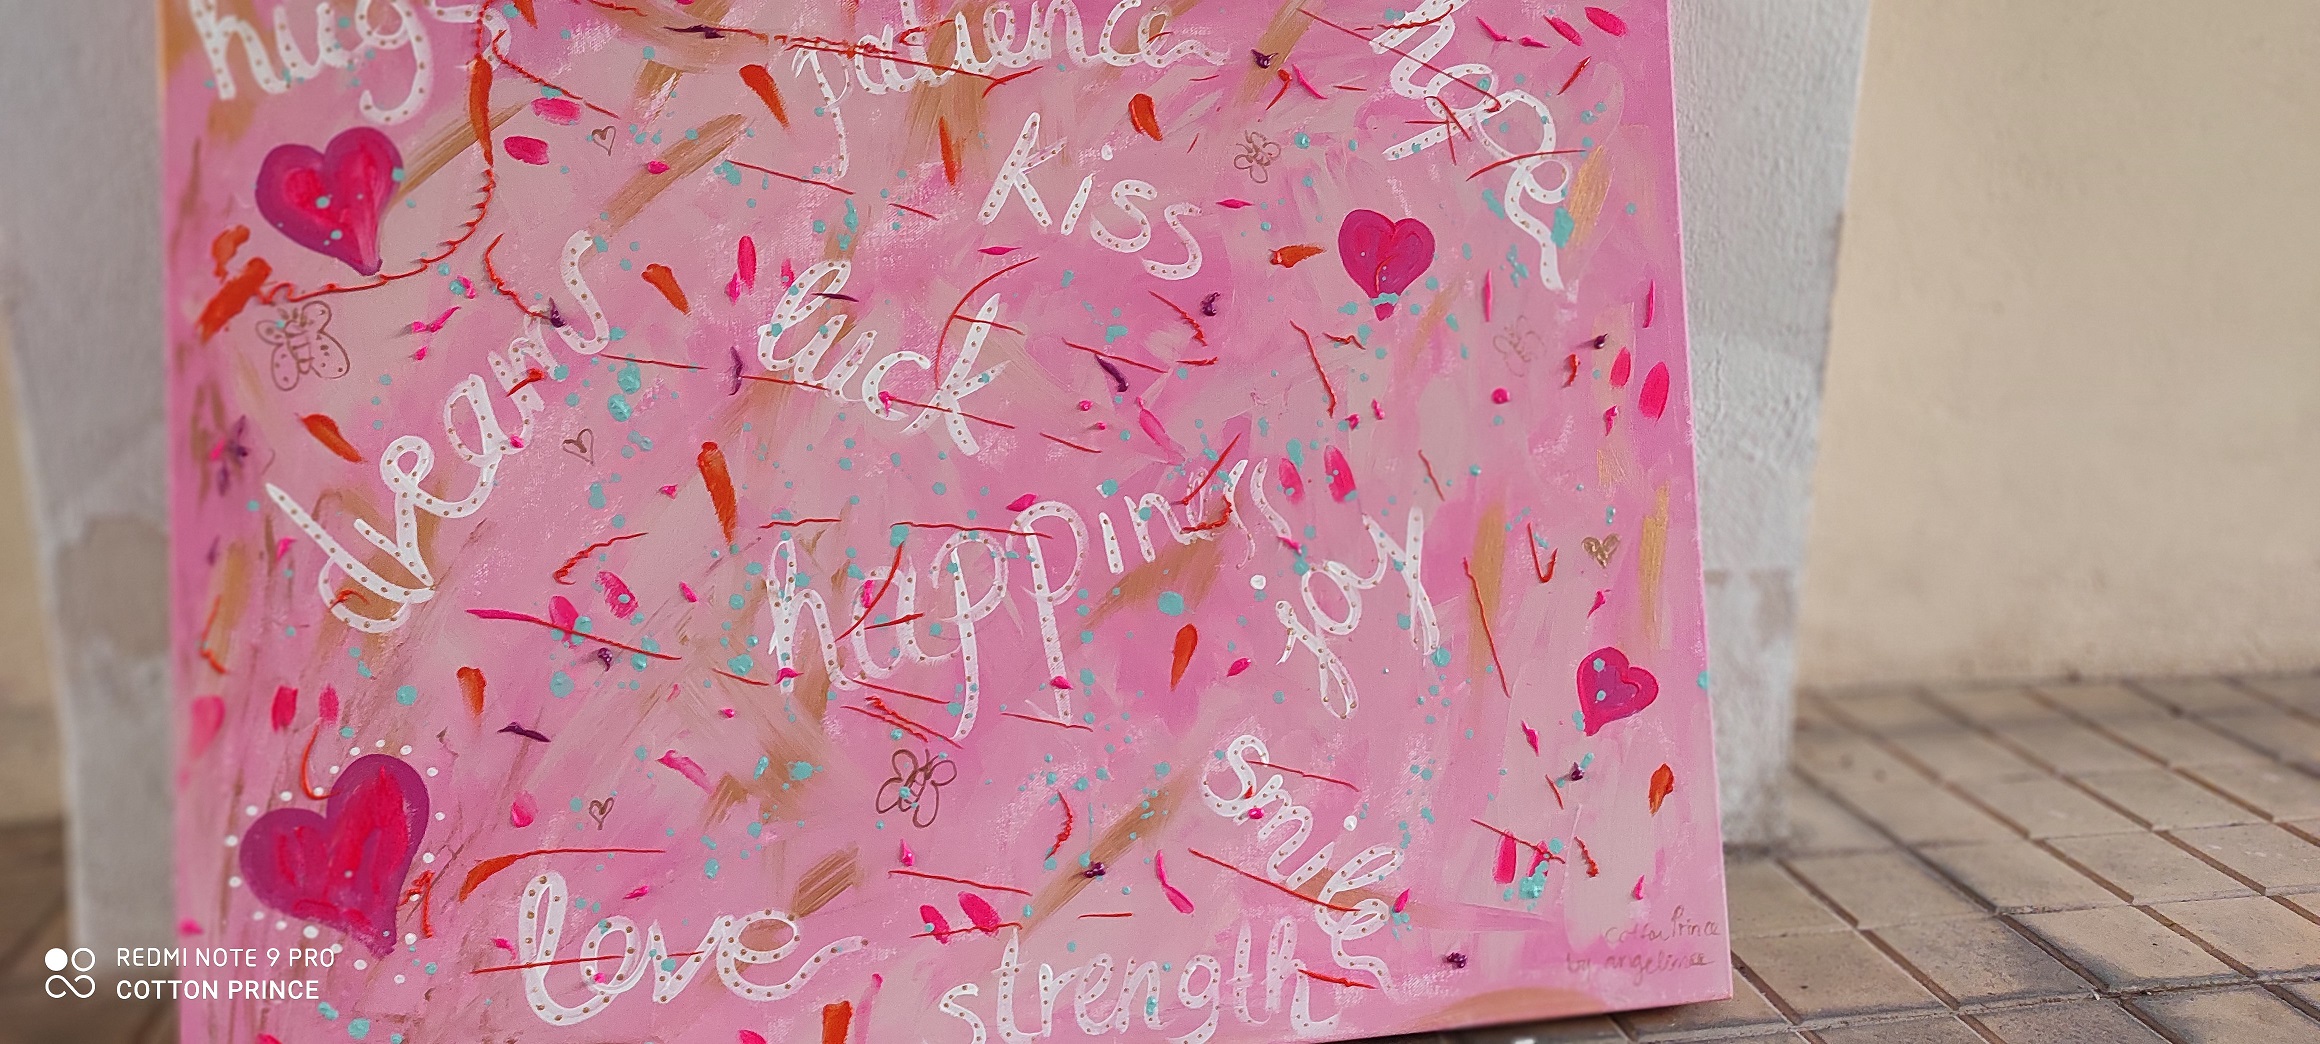 hug
patience
hope
kiss
dreams
luck
happiness
joy
smile
love
strength
Cotton Prince
by angelinaa
REDMI NOTE 9 PRO
COTTON PRINCE